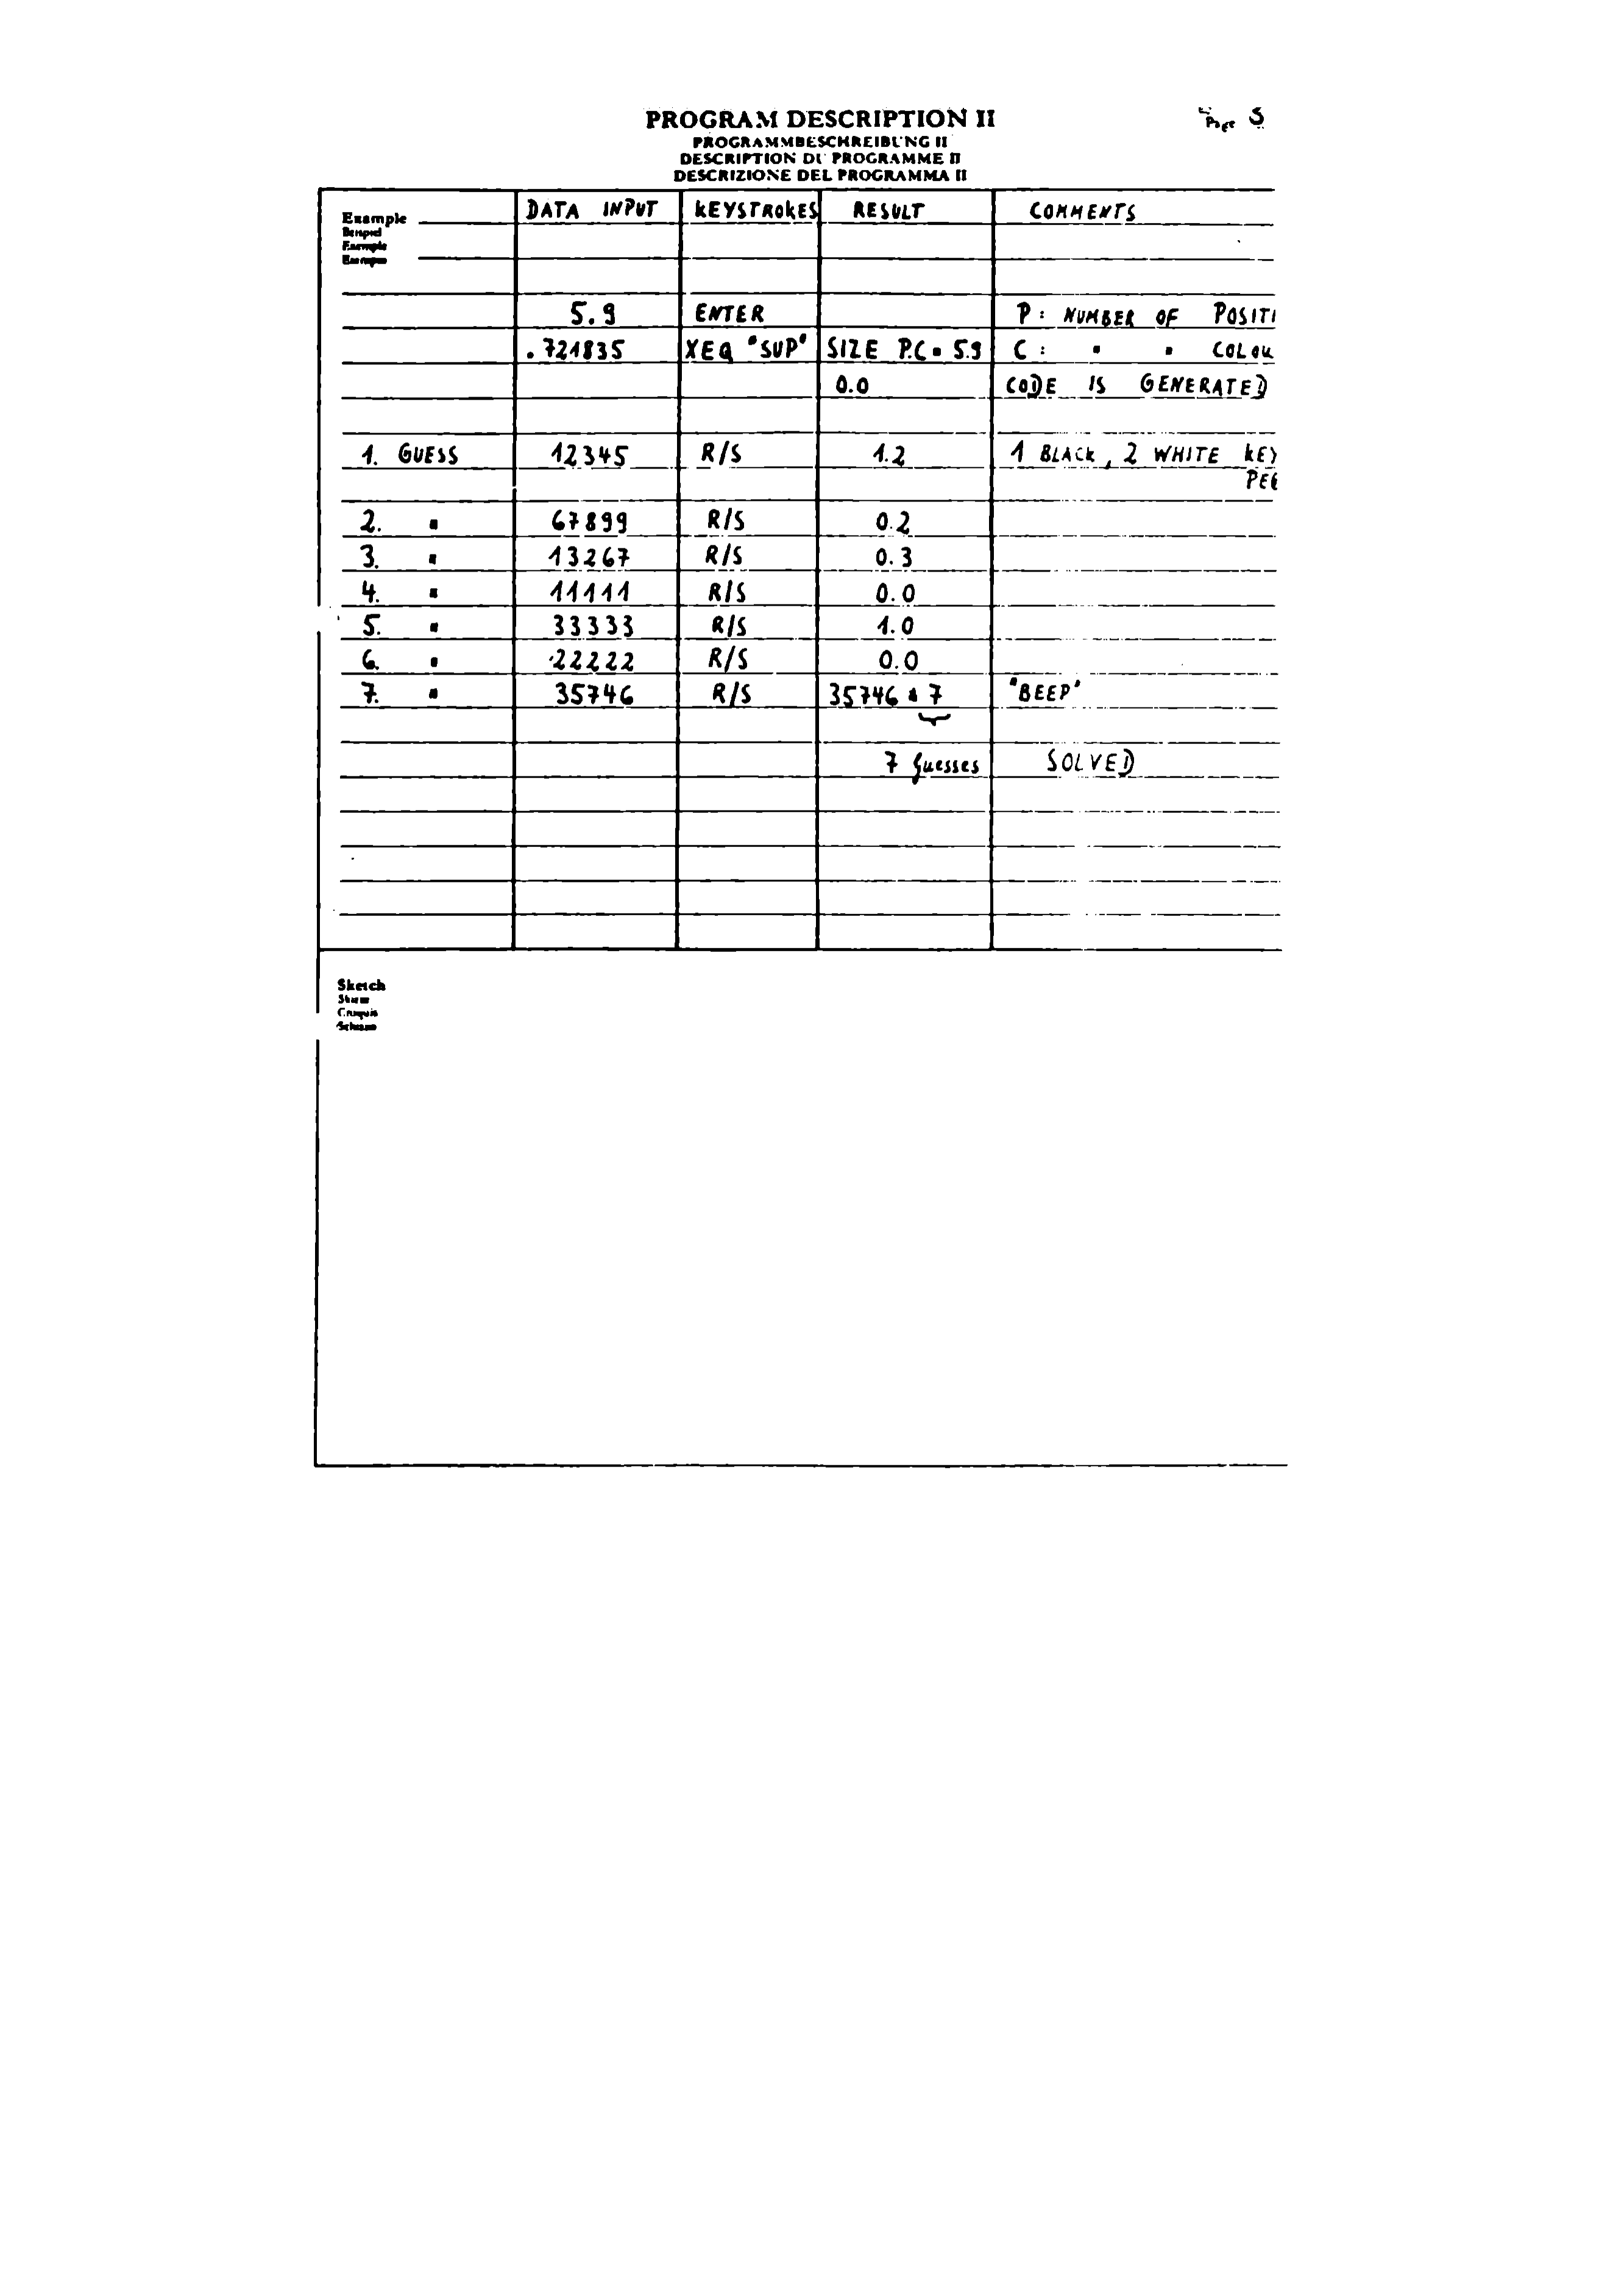 PROGRAM DESCRIPTION II
Page 5
PROGRAMMBESCHREIBUNG II
DESCRIPTION DU PROGRAMME II
DESCRIZIONE DEL PROGRAMMA II
Example DATA INPUT KEYSTROKES RESULT COMMENTS
Beispiel
Exemple
Esempio
5.9 ENTER P: NUMBER OF POSITI
.721835 XEQ "SUP" SIZE P.C = 5.9 C: " " COLOU
0.0 CODE IS GENERATED
1. GUESS 12345 R/S 1.2 1 BLACK, 2 WHITE KEY
PEG
2. " 67899 R/S 0.2
3. " 13267 R/S 0.3
4. " 11111 R/S 0.0
5. " 33333 R/S 1.0
6. " 22222 R/S 0.0
7. " 35746 R/S 35746 . 7 "BEEP"
7 Guesses SOLVED
Sketch
Skizze
Croquis
Schema